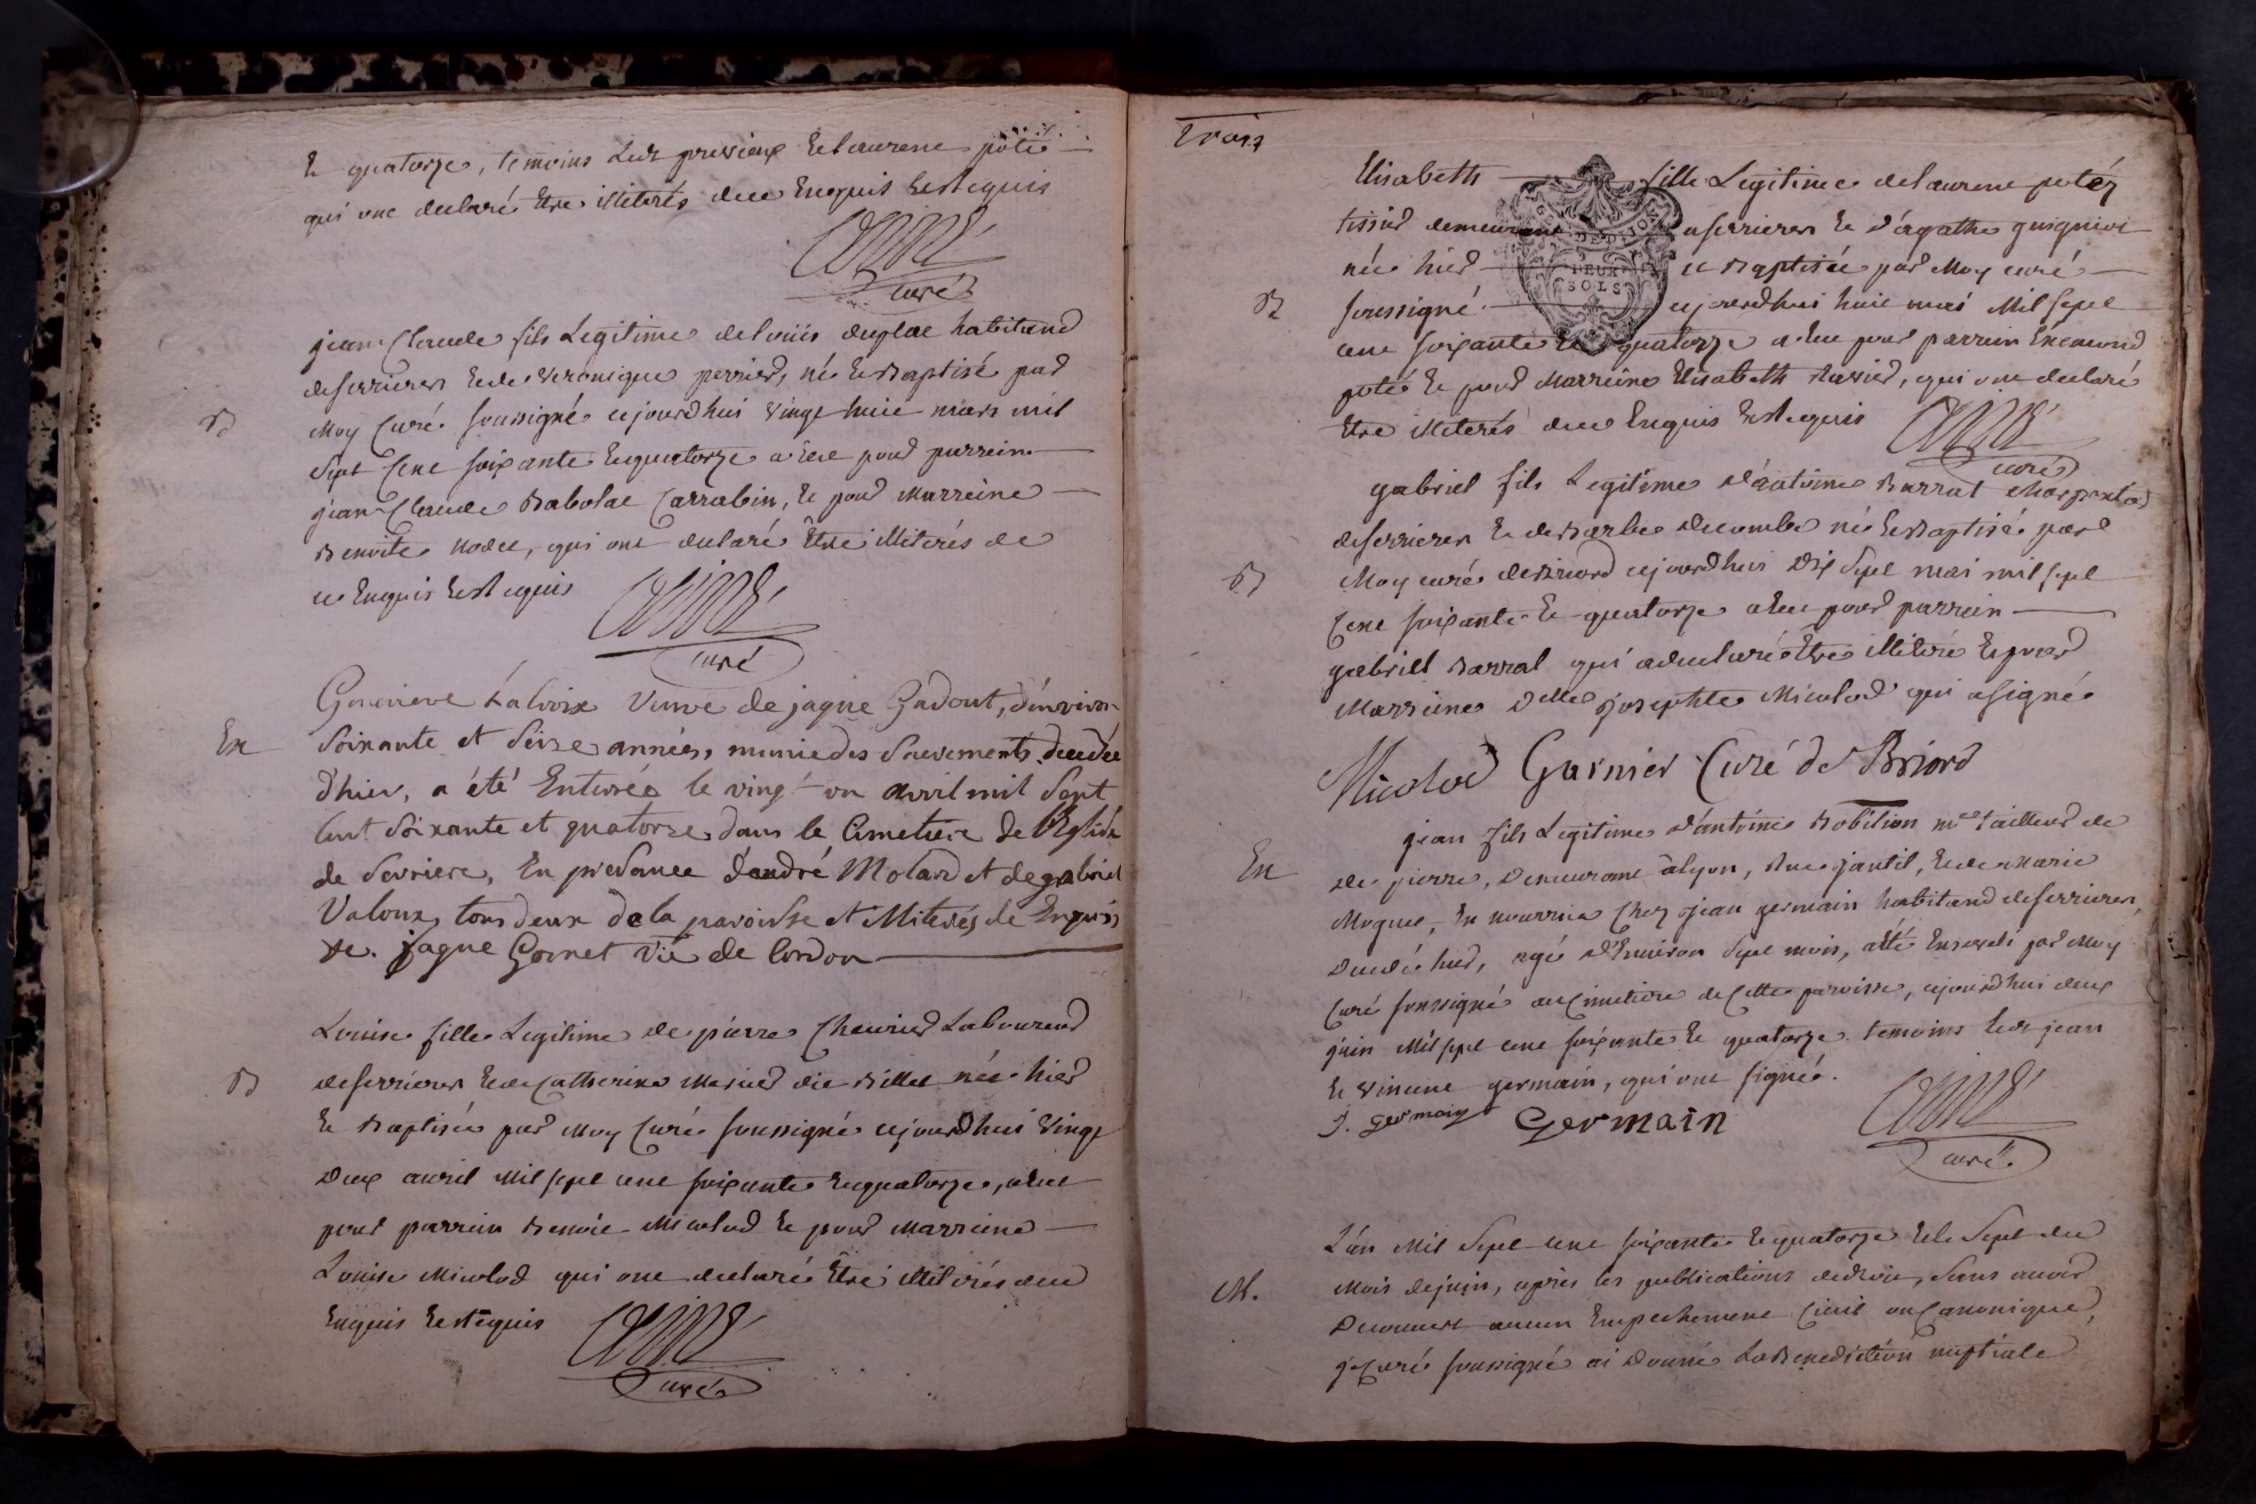 Et quatorze, temoins Led. previeux Et laurent potié
qui ont declaré Etre illiterés dece Enquis Et Requis
curé
jean Claude fils Legitime de louis duplat habitand
deserrieres Et de veronique perrier, né Et Baptisé par
B
Moy Curé soussigné cejourdhui vingt huit mars mil
Sept Cent soixante Et quatorze a Eu pour parrein
jean Claude Babolat Carrabin, Et pour marreine
Benoite nodet, qui ont declaré Etre illiterés de
ce Enquis Et Requis
curé
Genevieve Lacroix Veuve de jaque Gadout, d'environ
En
Soixante et Seize années, munie des Sacrements, decedée
d'hier, a été Enterrée le vingt un avril mil Sept
Cent Soixante et quatorze dans le Cimetiere de l'Eglise
de Serriere, En presence d'andré Molard et de gabriel
Valoux tous deux de la paroisse et illiterés de Enquis
jaque Gornet Vic de lordon
Louise fille Legitime de pierre Cheurier Laboureur
B
deserrieres Et de Catherine Mesier dit Billet née hier
Et Baptisée par Moy Curé soussigné cejourdhui vingt
Deux avril Mil sept cent soixante Et quatorze, a Eut
pour parrein Benoit Micolod Et pour Marreine
Louise Micolod qui ont declaré Etre illiterés dece
Enquis Et Requis
curé
Trois
Elisabeth fille Legitime de laurent potéz
DE DIJON
tissier demeurant a serrieres Et d'agathe guigniot
née hier et Baptisée par Moy curé
DEUX
SOLS
B
soussigné cejourdhui huit mai Mil sept
cent soixante Et quatorze a Eue pour parrein Enemond
potié Et pour Marreine Elisabeth Ravier, qui ont declaré
Etre illiterés dece Enquis Et Requis
curé
gabriel fils Legitime d'antoine Barrat charpentier
deserrieres Et de Barbe Decombe né Et Baptisé par
B
Moy curé de Briord cejourdhui Dix Sept mai mil sept
Cent soixante Et quatorze a Eut pour parrein
gabriel Barral qui a declaré Etre illiteré Et pour
Marreine Delle josephte Micolod qui a signé
Micolod Garnier Curé de Briord
jean fils Legitime d'antoine Robition me tailleur de
En
de pierre, Demeurant a lyon, Rue jantil, Et de Marie
Moguet, En nourrice Chez jean germain habitand deserrieres,
Decedé hier, agé d'Environ Sept mois, a été Enseveli par Moy
Curé soussigné au Cimetiere de Cette paroisse, cejourdhui deux
juin Mil sept cent soixante Et quatorze. temoins Led. jean
Et vincent germain, qui ont signé.
J. Germain Germain
curé
L'an Mil Sept cent soixante Et quatorze Et le Sept du
M.
Mois de juin, après les publications de droit, Sans avoir
Decouvert aucun Empechement Civil ou Canonique,
je Curé soussigné ai donné La Benediction nuptiale